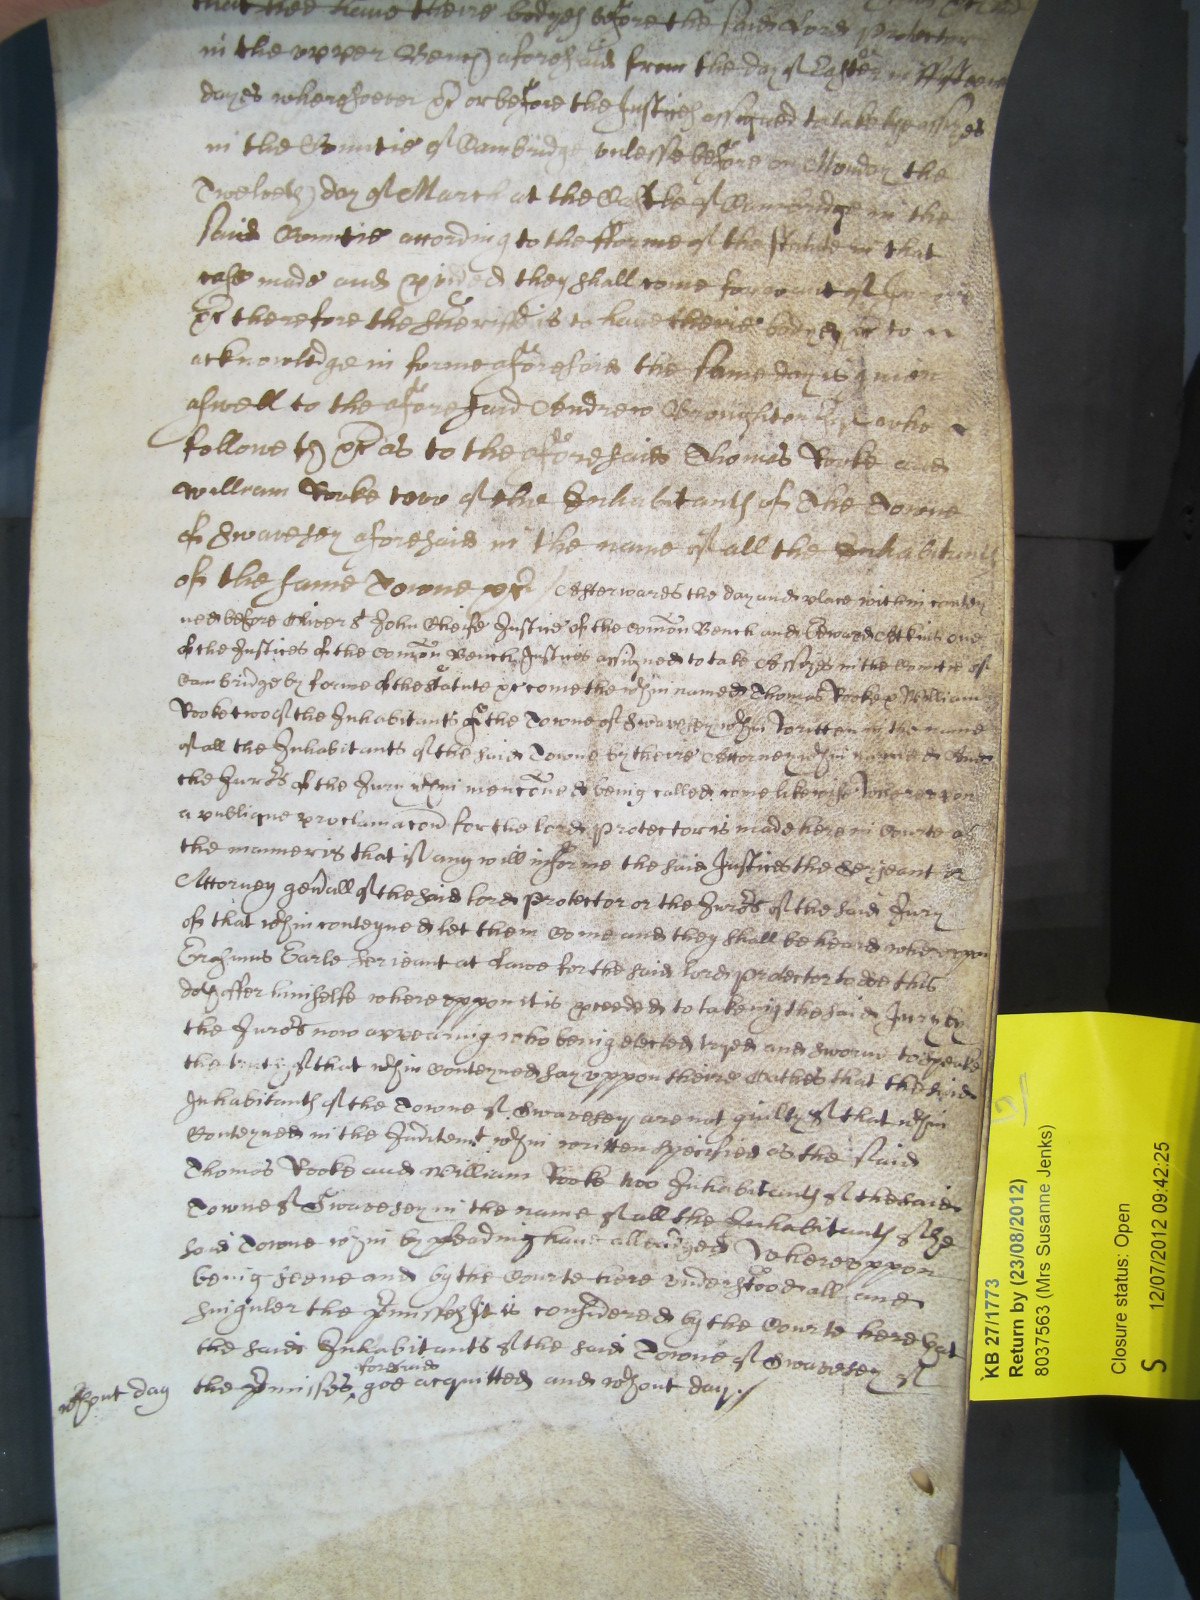 that hee have theire bodyes before the said Lord Protector
in the upper Bench aforesaid from the day of Easter in fifteene
dayes wheresoever &c or before the Justices assigned to take the assizes
in the Countie of Cambridge unlesse before on Monday the
Twelveth day of March at the Castle of Cambridge in the
said Countie according to the fforme of the statute in that
case made and p'vided they shall come for want of
&c therefore the Sheriffe is to have theire bodyes &c to
acknowledge in forme aforesaid the same day is given
aswell to the aforesaid Andrew Broughton who
followeth &c as to the aforesaid Thomas Rooke and
William Rooke two of the Inhabitants of the Towne
of Swavesey aforesaid in the name of all the Inhabitants
of the same Towne &c / Afterwards the day and place within contey
ned before Oliver St John Cheife Justice of the Com̄on Bench and Edward Atkins one
of the Justices of the Com̄on Bench Justices assigned to take Assizes in the Countie of
Cambridge by forme of the statute &c come the wthin named Thomas Rooke & William
Rooke two of the Inhabitants of the Towne of Swavesey wthin written in the name
of all the Inhabitants of the said Towne by theire Attorney wthin named And
the Jurors of the Jury wthin menc̄oned being called come likewise Whereupon
a publique proclamac̄on for the lord Protector is made here in Courte as
the manner is that if any will informe the said Justices the Serjeant or
Attorney gen'all of the said lord Protector or the Jurors of the said Jury
of that wthin conteyned let them Come and they shall be heard whereupon
Erasmus Earle Serjeant at Lawe for the said lord Protector to doe this
doth offer himselfe whereuppon it is p'ceeded to takeing the said Jury by
the Jurors now appearing who being elected tryed and sworne to speake
the truth of that wthin Conteyned say uppon theire Oathes that the said
Inhabitants of the Towne of Swavesey are not guilty of that wthin
Conteyned in the Inditemt wthin written specified as the said
Thomas Rooke and William Rooke two Inhabitants of the said
Towne of Swavesey in the name of all the Inhabitants of the
said Towne wthin by pleading have alleadged Whereuppon
being seene and by the Courte here understood all and
singuler the p'misses It is considered by the Courte here that
the said Inhabitants of the said Towne of Swavesey of
the p'misses foresaid goe acquitted and wthout day /
wthout day
KB 27/1773
Return by (23/08/2012)
8037563 (Mrs Susanne Jenks)
Closure status: Open
S 12/07/2012 09:42:25